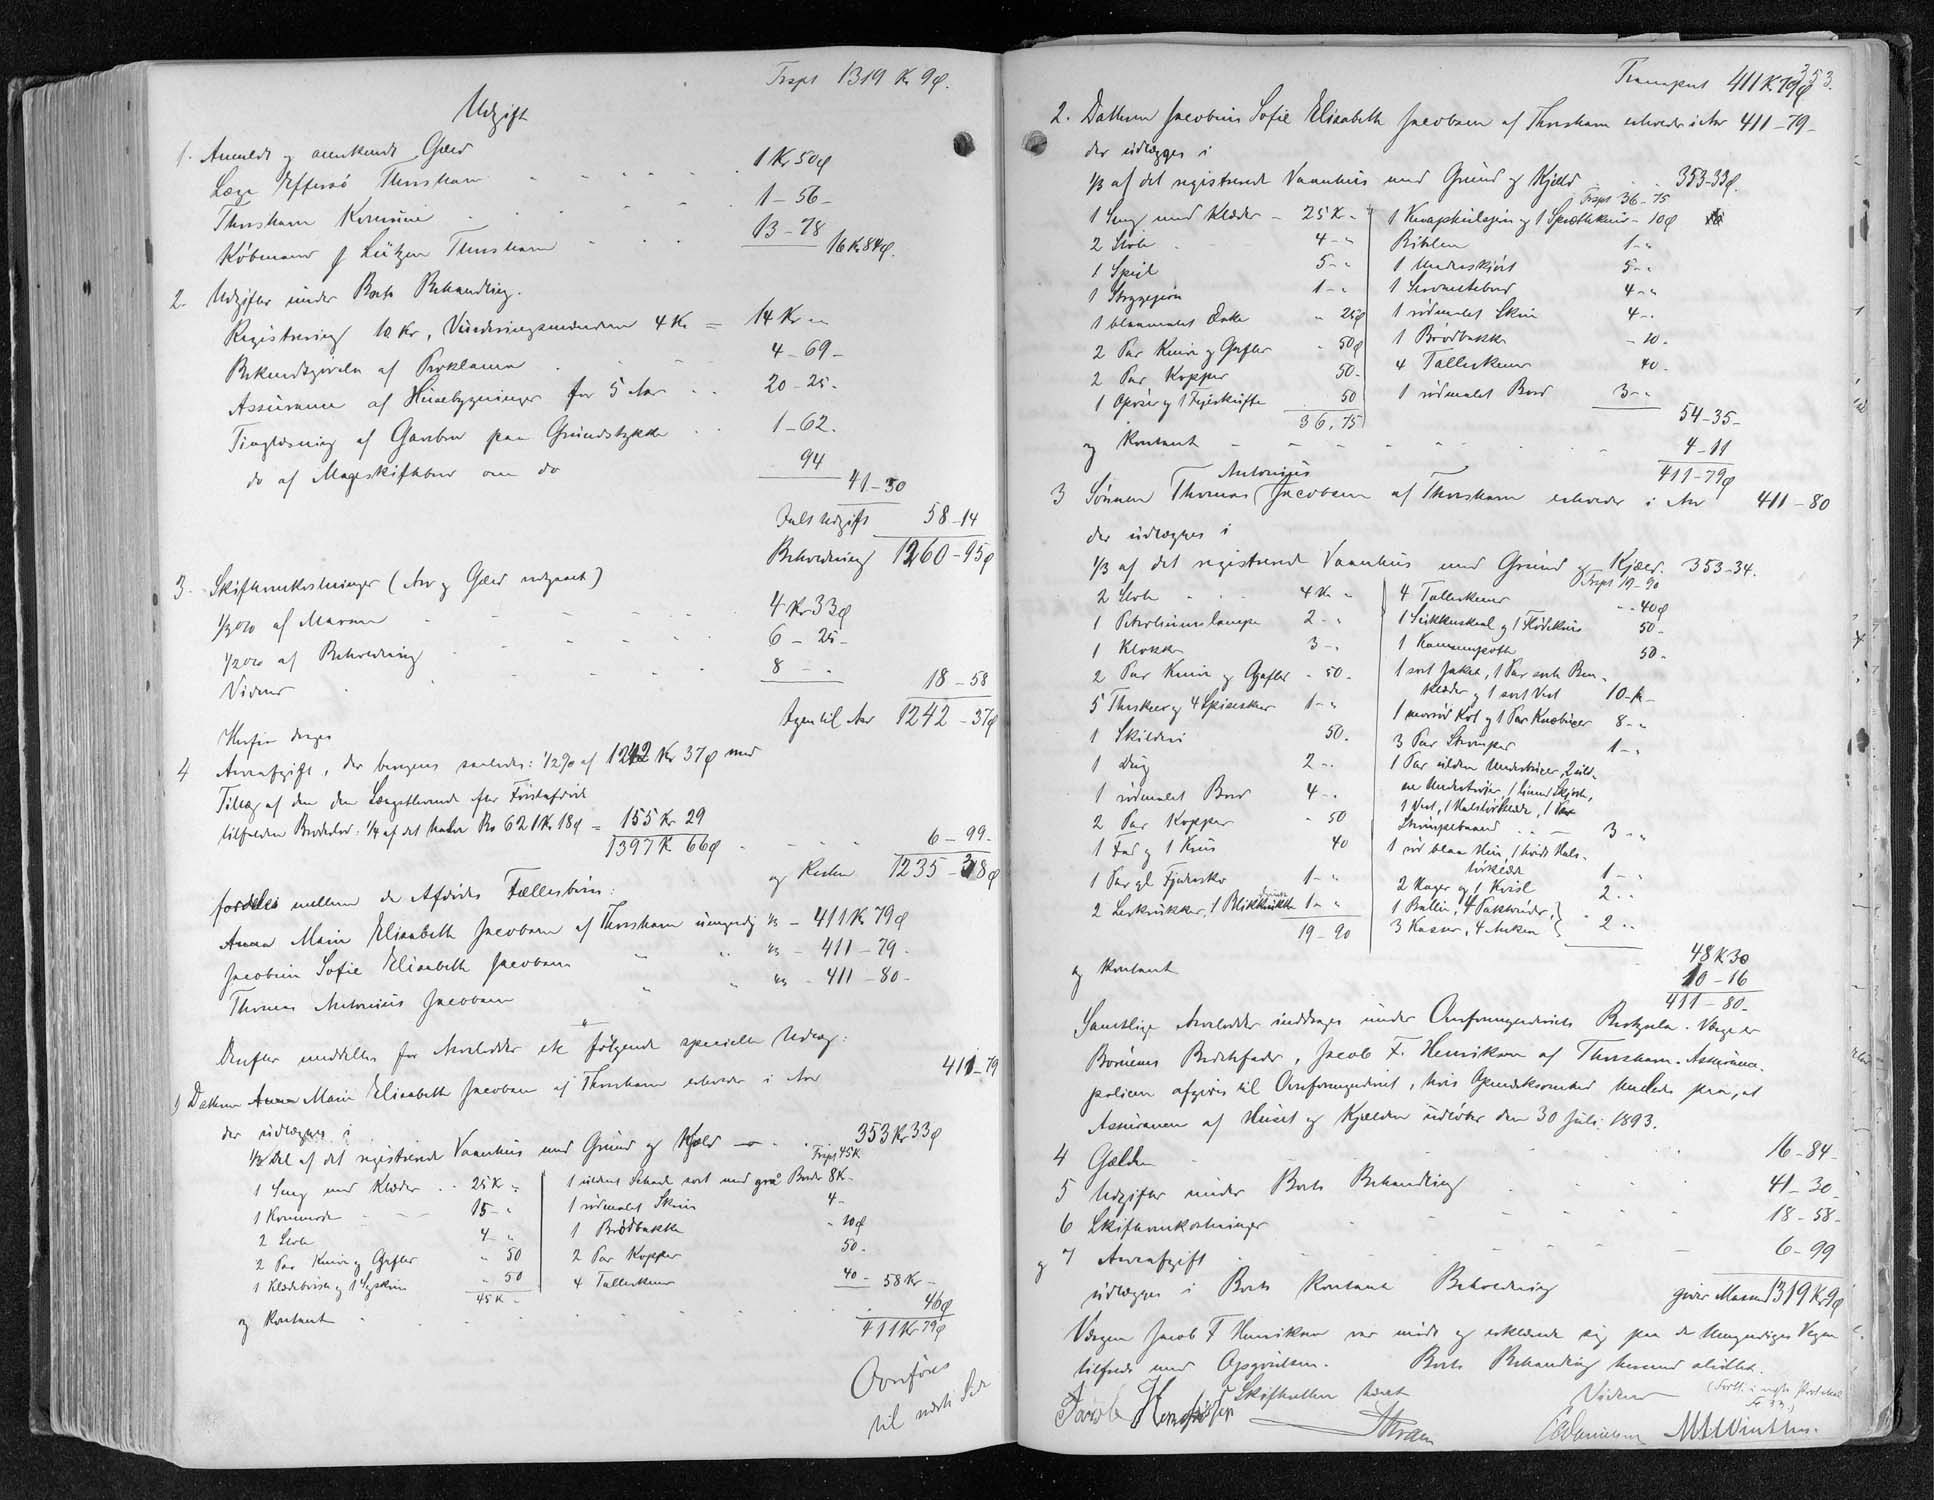 Trspt 1319 Kr 9ø.
Udgift
1. Anmeldt og anerkendt Gæld
Læge Effersö Thorshavn 1 Kr 50ø
Thorshavn Kommune 1 - 56 -
Købmand J Lützen Thorshavn 13 - 78
16 Kr 84ø.
2. Udgifter under Boets Behandling.
Registrering 10 Kr, Vurderingsmændene 4 Kr = 14 Kr "
Bekendtgörelse af Proklama 4 - 69 -
Assurance af Husebygninger for 5 Aar 20 - 25 -
Tinglæsning af Gavebrev paa Grundstykke 1 - 62.
do af Mageskiftebrev om do 94
41 - 50
Ialt Udgift 58 - 14
Beholdning 1260 - 95ø
3. Skifteomkostninger (Arv og Gæld udgaaet)
1/3 % af Massen 4 Kr 33ø
1/2 % af Beholdning 6 - 25 -
Vidner 8 - "
18 - 58
Igen til Arv 1242 - 37ø
Herfra drages
4 Arveafgift, der beregnes saaledes: 1/2 % af 1242 Kr 37ø med
Tillæg af den den Længstlevende efter Førstafdøde
tilfaldne Broderlod: 1/4 af det halve Bo 621 Kr 18ø = 155 Kr 29
1397 K 66ø
6 - 99 -
og Resten 1235 - 38ø
fordeles mellem de Afdödes Fællesbörn:
Anna Marie Elisabeth Jacobsen af Thorshavn umyndig 1/3 - 411 K 79ø
Jacobine Sofie Elisabeth Jacobsen " " 1/3 - 411 - 79 -
Thomas Antonius Jacobsen " " 1/3 - 411 - 80 -
Derefter meddeltes for Arvelodder etc følgende specielle Udlæg:
1) Datteren Anna Marie Elisabeth Jacobsen af Thorshavn erholder i Arv 411 - 79
der udlægges i
1/3 Del af det registrerede Vaanhus med Grund og Kjæld 353 Kr 33ø
Trspt 45 K
1 Seng med Klæder 25 K " 1 ulden Schawl sort med graa Border 8 K -
1 Kommode 15 - " 1 rödmalet Skrin 4 -
2 Stole 4 - " 1 Brödbakke " 10ø
2 Par Knive og Gafler " 50 2 Par Kopper 50 -
1 Klædebörste og " 50 4 Tallerkener 40 - 58 Kr -
45 K -
og kontant 46ø
411 Kr 79ø
Overföres
til næste Side
353.
Transport 411 K 79ø
2. Datteren Jacobine Sofie Elisabeth Jacobsen af Thorshavn erholder i Arv 411 - 79 -
der udlægges i
1/3 af det registrerede Vaanhus med Grund og Kjæld 353 - 33ø.
Trspt 36 - 75
1 Seng med Klæder - 25 K - " - 10ø
2 Stole 4 - " Biblen 1 - "
1 Spejl 5 - " 1 Underskjört 5 - "
1 Strygejern 1 - " 1 4 - "
1 blaamalet " 25ø 1 rödmalet Skrin 4 - "
2 Par Knive og Gafler " 50ø 1 Brödbakke - 10 -
2 Par Kopper 50 - 4 Tallerkener 40 -
1 og 1 Fejeskuffe 50 1 rödmalet Bord 3 - "
36, 75
54 - 35 -
og kontant 4 - 11
411 - 79ø
3 Sönnen Thomas Antonius Jacobsen af Thorshavn erholder i Arv 411 - 80
der udlægges i
1/3 af det registrerede Vaanhus med Grund og Kjæld. 353 - 34.
Trspt 19 - 90
2 Stole 4 K " 4 Tallerkener " - 40ø
1 Petroleumslampe 2 - " 1 Sukkerskaal og 1 Flödekrus 50 -
1 Klokke 3 - " 1 Kammerpotte 50 -
2 Par Knive og Gafler - 50 - 1 sort Jakke, 1 Par sorte Ben-
5 Theskeer og 4 Spiseskeer 1 - " klæder og 1 sort Vest 10 -
1 Skilderi 50. 1 Kot og 1 Par Knæbuxer 8 - "
1 Dug 2 - " 3 Par Strömper 1 - "
1 rödmalet Bord 4 - " 1 Par uldne Underbuxer, 2 uld-
2 Par Kopper - 50 ne Undertröjer, 1 linned Skjorte,
1 Fad og 1 Krus 40 1 Vest, 1 Halstörklæde, 1 Par
Strömpebaand 3 - "
1 Par gl Fjedersko 1 - " 1 rød blaa Hue, 1 hvidt Hals-
törklæde 1 - "
2 Lerkrukker, 1 Blikdunk 1 - " 2 og 1 Kvisl 2 - "
19 - 90 1 Ballie, 4
3 Kasser, 4 Anker } 2 - "
48 K 30
og kontant 10 - 16
411 - 80 -
Samtlige Arvelodder inddrages under Overformynderiets Bestyrelse. Værge er
Börnenes Bedstefader, Jacob F. Henriksen af Thorshavn. Assurance-
policen afgives til Overformynderiet, hvis Opmærksomhed henledes paa, at
Assurancen af Huset og Kjælderen udløber den 30 Juli 1893.
4 Gælden 16 - 84 -
5 Udgifter under Boets Behandling 41 - 30 -
6 Skifteomkostninger 18 - 58 -
og 7 Arveafgift 6 - 99
udlægges i Boets kontante Beholdning giver Massen 1319 Kr 9ø
Værgen Jacob F Henriksen var mödt og erklærede sig paa de Umyndiges Vegne
tilfreds med Opgörelsen. Boets Behandling hermed sluttet.
Skifteretten hævet Vidner (Forts. i nyt Protokol
Jacob Henriksen